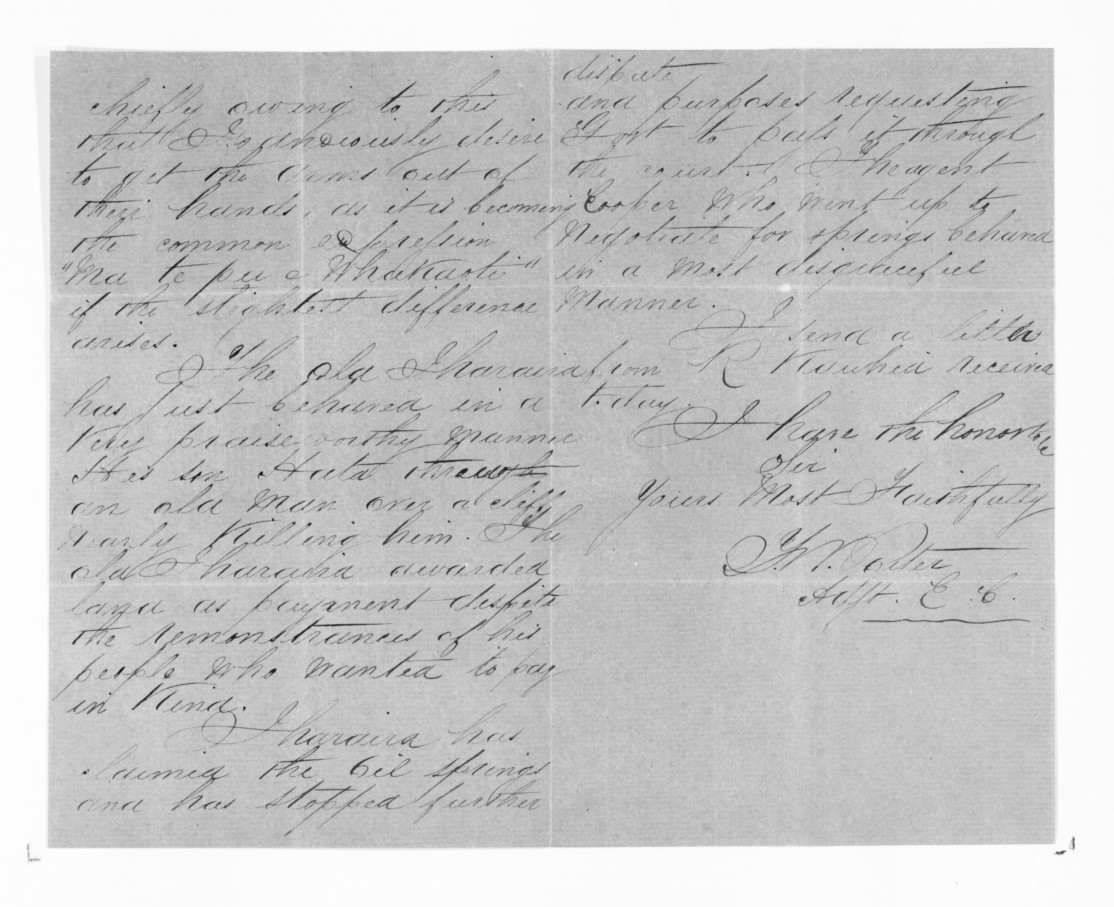 chiefly owing to this
that I so anxiously desire
to get the arms out of
their hands, as it is becoming
the common expression
"Ma te pu e Whakaoti"
if the slightest difference
arises.
The old Iharaira
has just behaved in a
very praiseworthy manner
His son Hata through
an old man over a cliff
nearly killing him. The
old Iharaira awarded
land as payment despite
the remonstrances of his
people who wanted to pay
in Kind.
Iharaira has
claimed the Oil springs
and has stopped further
dispute
and purposes requesting
Govt to pass it through
the court. The agent
Cooper who went up to
Negotiate for springs behaved
in a most disgraceful
manner.
I send a letter
from R Kawhia received
today.
I have the honor to be
Sir
Yours Most Faithfully
T. W. Porter
Adjt. E. C.